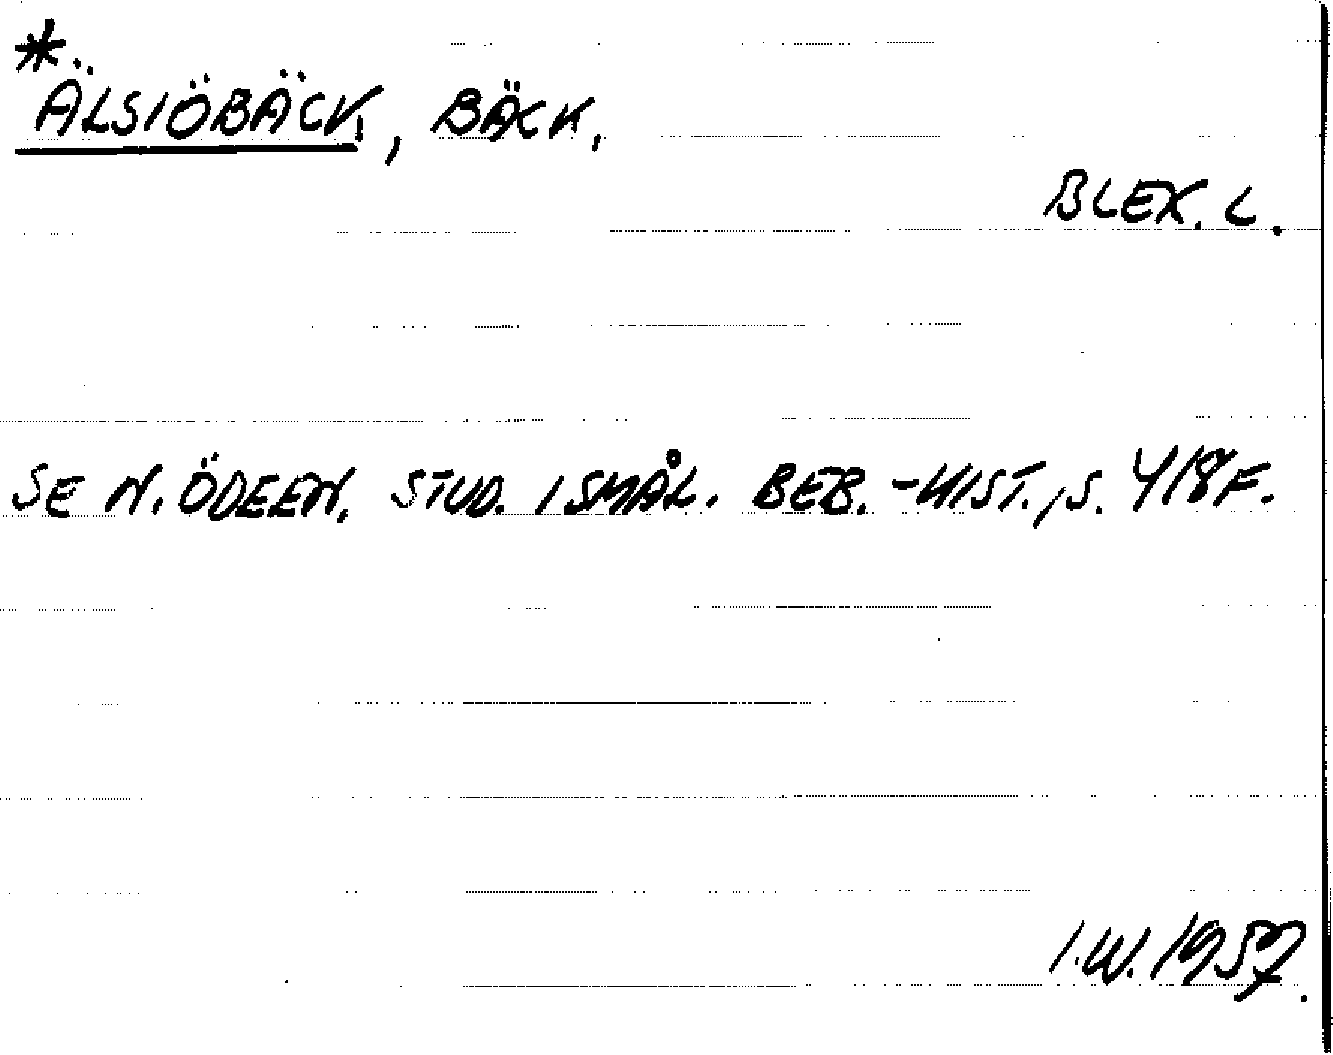 *
ÄLSIÖBÄCK, BÄCK,
BLEK. L.
SE N. ÖDEEN, STUD. I SMÅL. BEB.-HIST., S. 418F.
I.W. 1957.